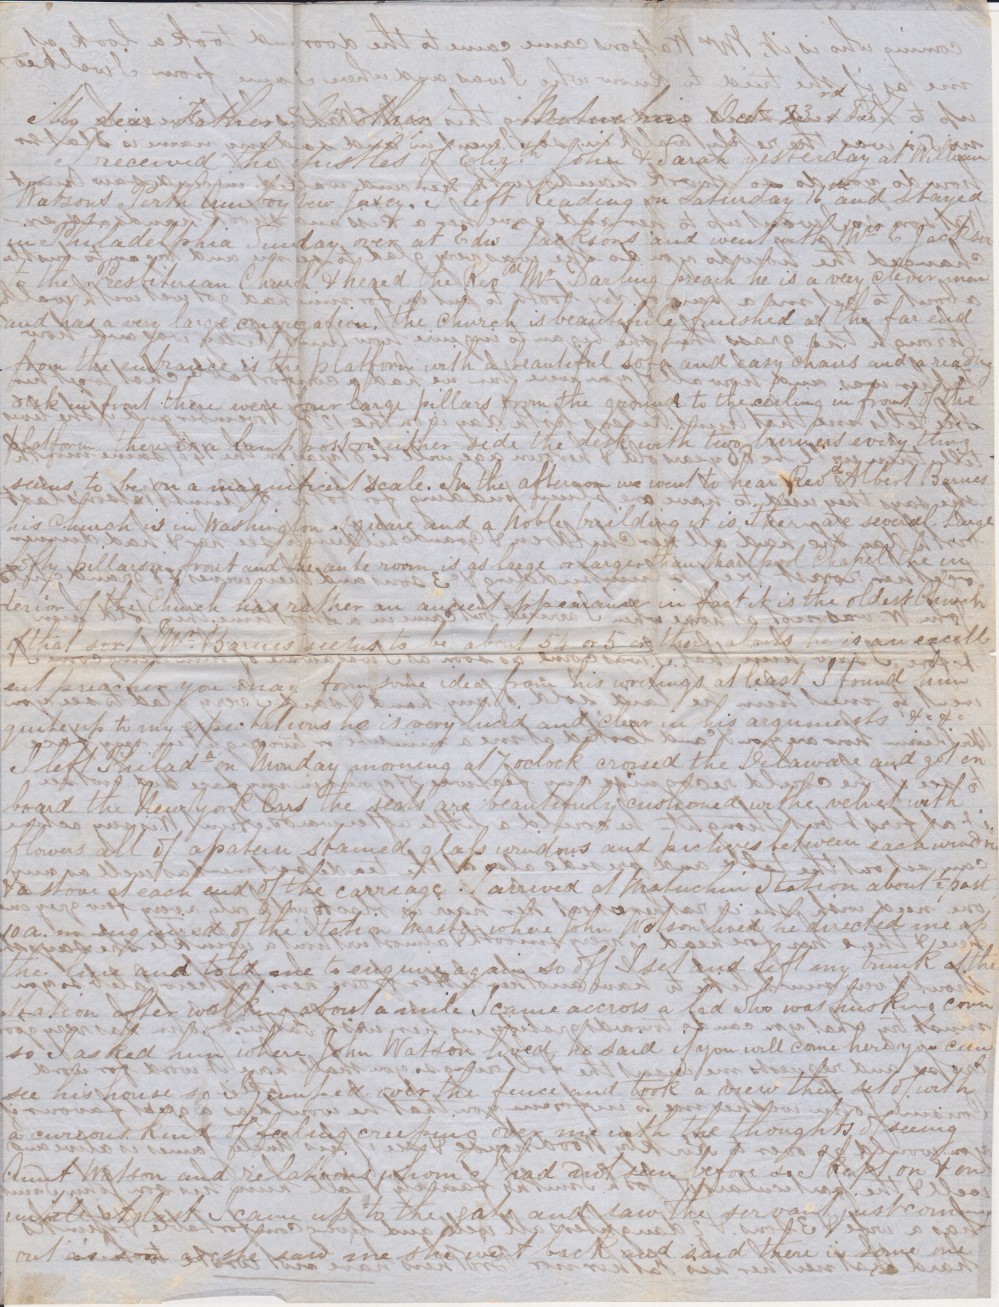 My dear Father & Mother Matuchin Oct 23rd
I received the Epistles of Eliz.th John & Sarah yesterday at William
Watsons Perth Amboy New Jersey. I left Reading on Saturday 16 and stayed
in Philadelphia Sunday over at Edwd Jacksons and went with Mrs E Jackson
to the Presbiterian Church & heard the Revd Mr Darling preach he is a very clever man
and has a very large congregation. the church is beautifully furnished at the far end
from the entrance is the platform with a beautiful sofa and easy chairs and a reading
desk in front there were four large pillars from the ground to the ceiling in front of the
platform there is a lamp post on either side the desk with two burners every thing
seems to be on a magnificent scale. In the afternoon we went to hear Revd Albert Barnes
his Church is in Washington Square and a noble building it is there are several large
pillars in front and the ante room is as large or larger than Chapel the in
terior of the Church has rather an ancient appearance in fact it is the oldest Church
of that sort Mr Barnes seems to be about 54 or 5 or there abouts he is an excell
ent preacher you may form some idea from his writings at least I found him
quite up to my expectations he is very lucid and clear in his arguments &c &c
I left Philada on Monday morning at 7 oclock crossed the Delaware and got on
board the New York Cars the seats are beautifully cushioned withe velvet with
flowers all of a patern stained glass windows and pictures between each window
& a stove at each end of the carriage. I arrived at Matuchin Station about ½ past
10 a.m enquired of the Station Master where John Watson lived he directed me up
the line and told me to enquire again so off I set and left my trunk at the
station after walking about a mile I came accross a lad who was husking corn
so I asked him where John Watson lived, he said if you will come here you can
see his house so I jumped over the fence and took a view then set off with
a curious kind of feeling creeping over me with the thoughts of seeing
Aunt Watson and relations whom I had not seen before so I kept on & on
untill at last I came up to the gate and saw the servant just coming
out as soon as she saw me she went back and said there is some one